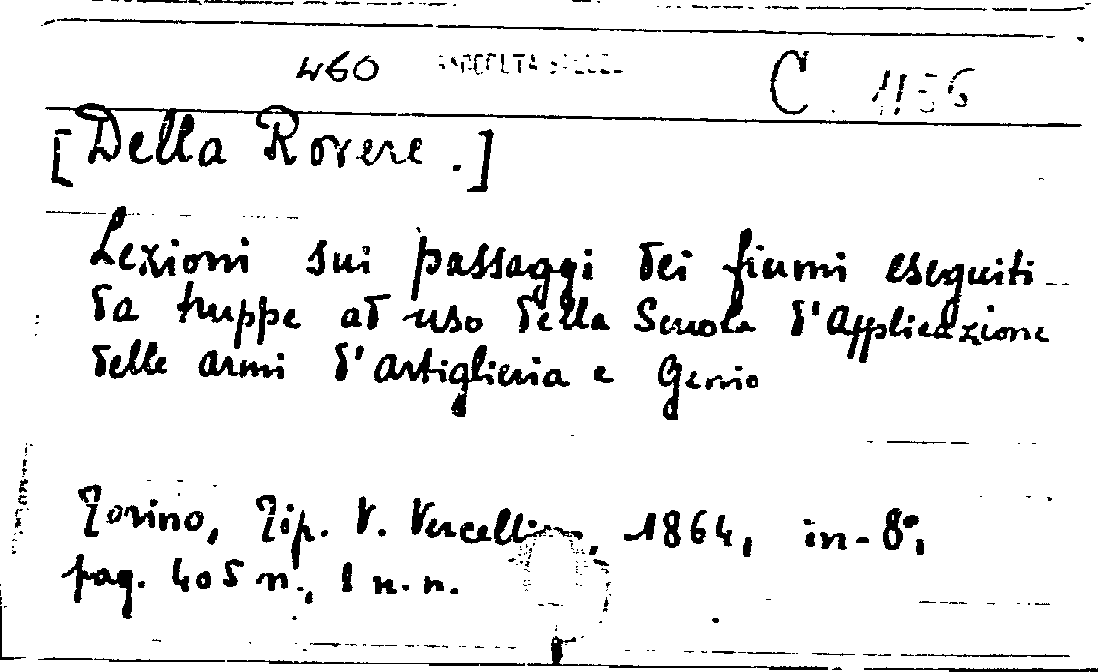 460 C. 1156
[Della Rovere.]
Lezioni sui passaggi dei fiumi eseguiti
da truppe ad uso della Scuola d'Applicazione
delle armi d'Artiglieria e Genio
Torino, Tip. V. Vercellino, 1864, in-8°,
pag. 405 n., 1 n.n.